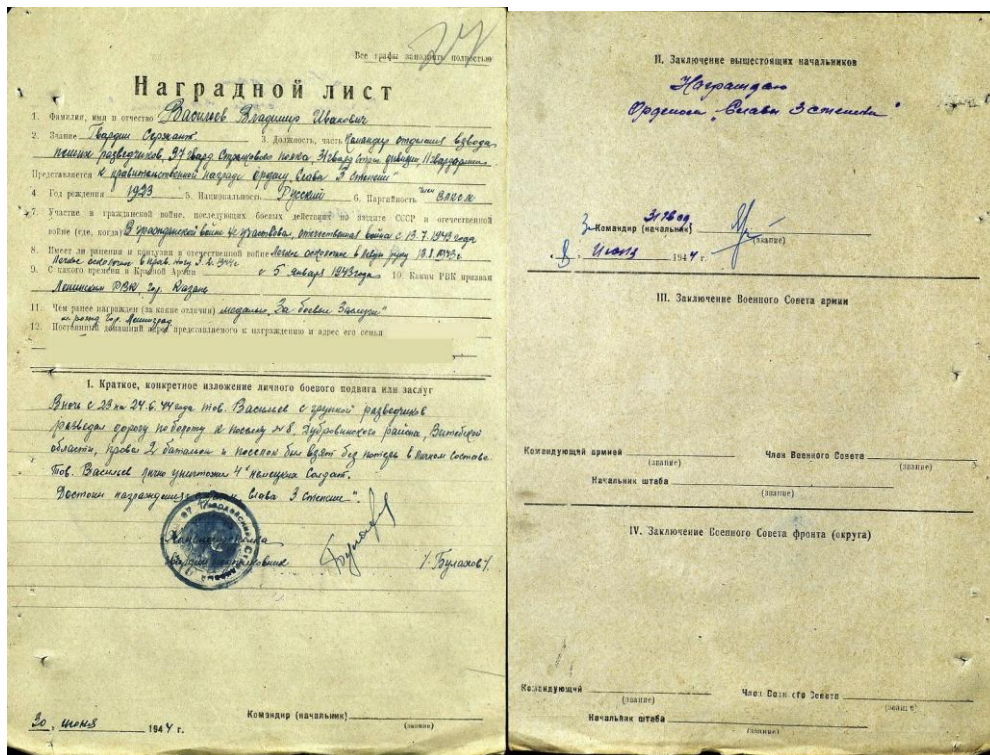 27
Все графы заполнять полностью
Наградной лист
1. Фамилия, имя и отчество Васильев Владимир Иванович
2. Звание Гвардии Сержант 3. Должность, часть Командир отделения взвода
пеших разведчиков, 97 гвард Стрелкового полка, 31 гвард стрел дивизии, 11 гвардармии
Представляется к правительственной награде ордену „Слава 3 степени"
4. Год рождения 1923 5. Национальность Русский 6. Партийность член ВЛКСМ
7. Участие в гражданской войне, последующих боевых действиях по защите СССР и отечественной
войне (где, когда) В гражданской войне не участвовал, отечественная война с 13.7.1943 года
8. Имеет ли ранения и контузии в отечественной войне Легкое осколочное в левую руку
Легкое осколочное в прав. ногу
9. С какого времени в Красной Армии с 5 января 1943 года 10. Каким РВК призван
Ленинским РВК, гор. Казань
11. Чем ранее награжден (за какие отличия) медалью „За боевые Заслуги"
12. Постоянный домашний адрес представляемого к награждению и адрес его семьи
I. Краткое, конкретное изложение личного боевого подвига или заслуг
В ночь с 23 на 24.6.44 года тов. Васильев с группой разведчиков
разведал дорогу по болоту к поселку №8, Дубровинского района, Витебской
области, провел 2 батальон и поселок был взят без потерь в личном составе.
Тов. Васильев лично уничтожил 4х немецких Солдат.
Достоин награждения орденом „Слава 3 степени".
Командир полка
Гвардии подполковник /Булахов/.
30 июня 1944 г. Командир (начальник)
(звание)
II. Заключение вышестоящих начальников
Награждаю
Орденом „Славы 3 степени"
Командир (начальник)
(звание)
8 июля 1944 г.
III. Заключение Военного Совета армии
Командующий армией Член Военного Совета
(звание) (звание)
Начальник штаба
(звание)
IV. Заключение Военного Совета фронта (округа)
Командующий Член Военного Совета
(звание) (звание)
Начальник штаба
(звание)